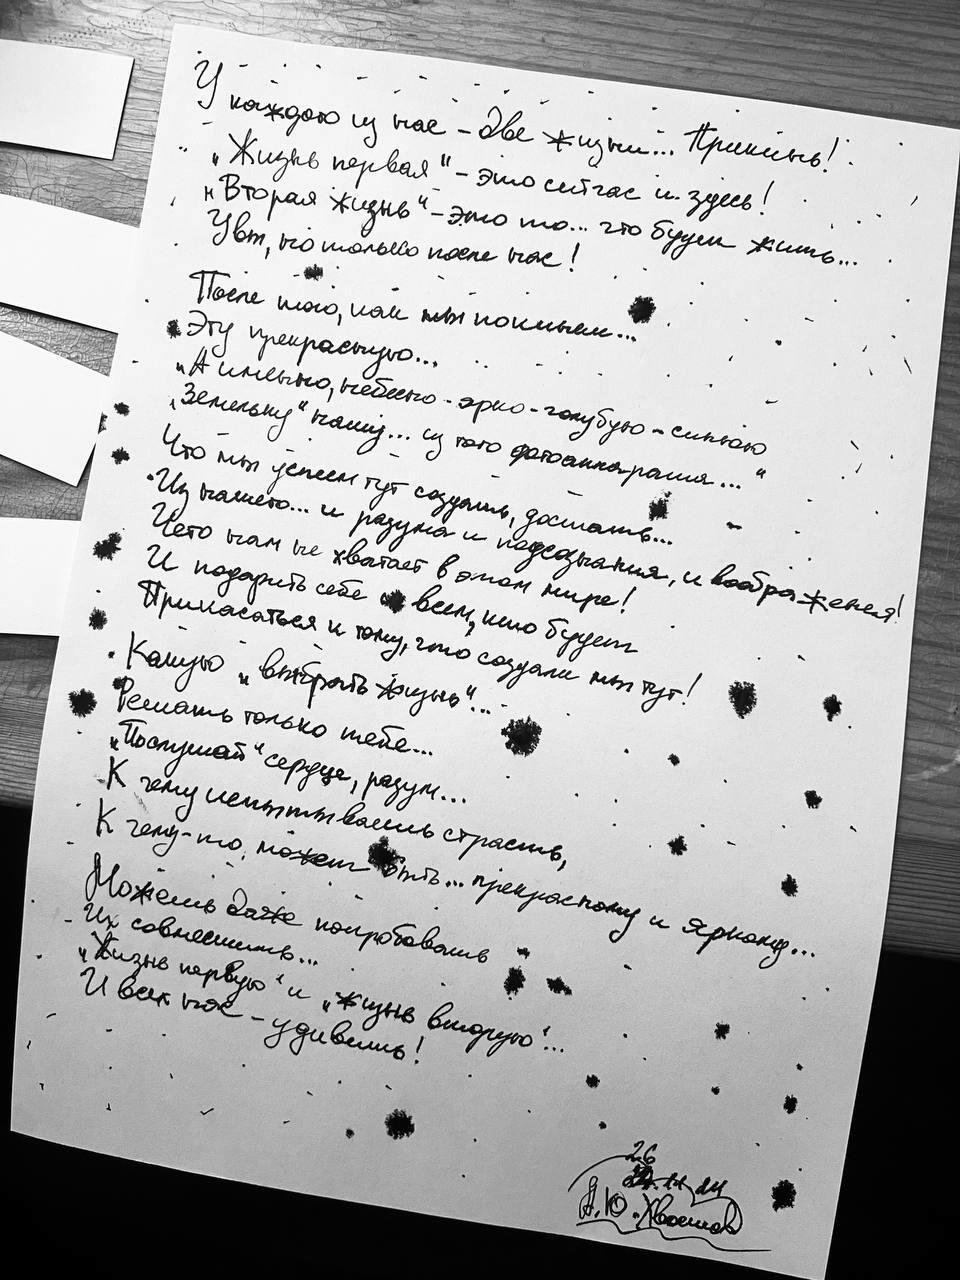 У каждого из нас – две жизни... Прикинь!
„Жизнь первая" – это сейчас и здесь!
„Вторая жизнь" – это то... что будет жить...
Увы, но только после нас!
После того, как мы покинем...
Эту прекрасную...
„А именно, небесно-ярко-голубую-синюю
„Земельку" нашу... из того фотоаппарата..."
Что мы успеем тут создать, достать...
Из нашего... и разума и подсознания, и воображения!
Чего нам не хватает в этом мире!
И подарить себе и всем, кто будет
Прикасаться к тому, что создали мы тут!
Какую „выбрать жизнь"...
Решать только тебе...
„Послушай" сердце, разум...
К чему испытываешь страсть,
К чему-то, может быть... прекрасному и яркому...
Можешь даже попробовать
Их совместить...
„Жизнь первую" и „жизнь вторую"...
И всех нас – удивишь!
26
.11.24
А.Ю. Хвостов